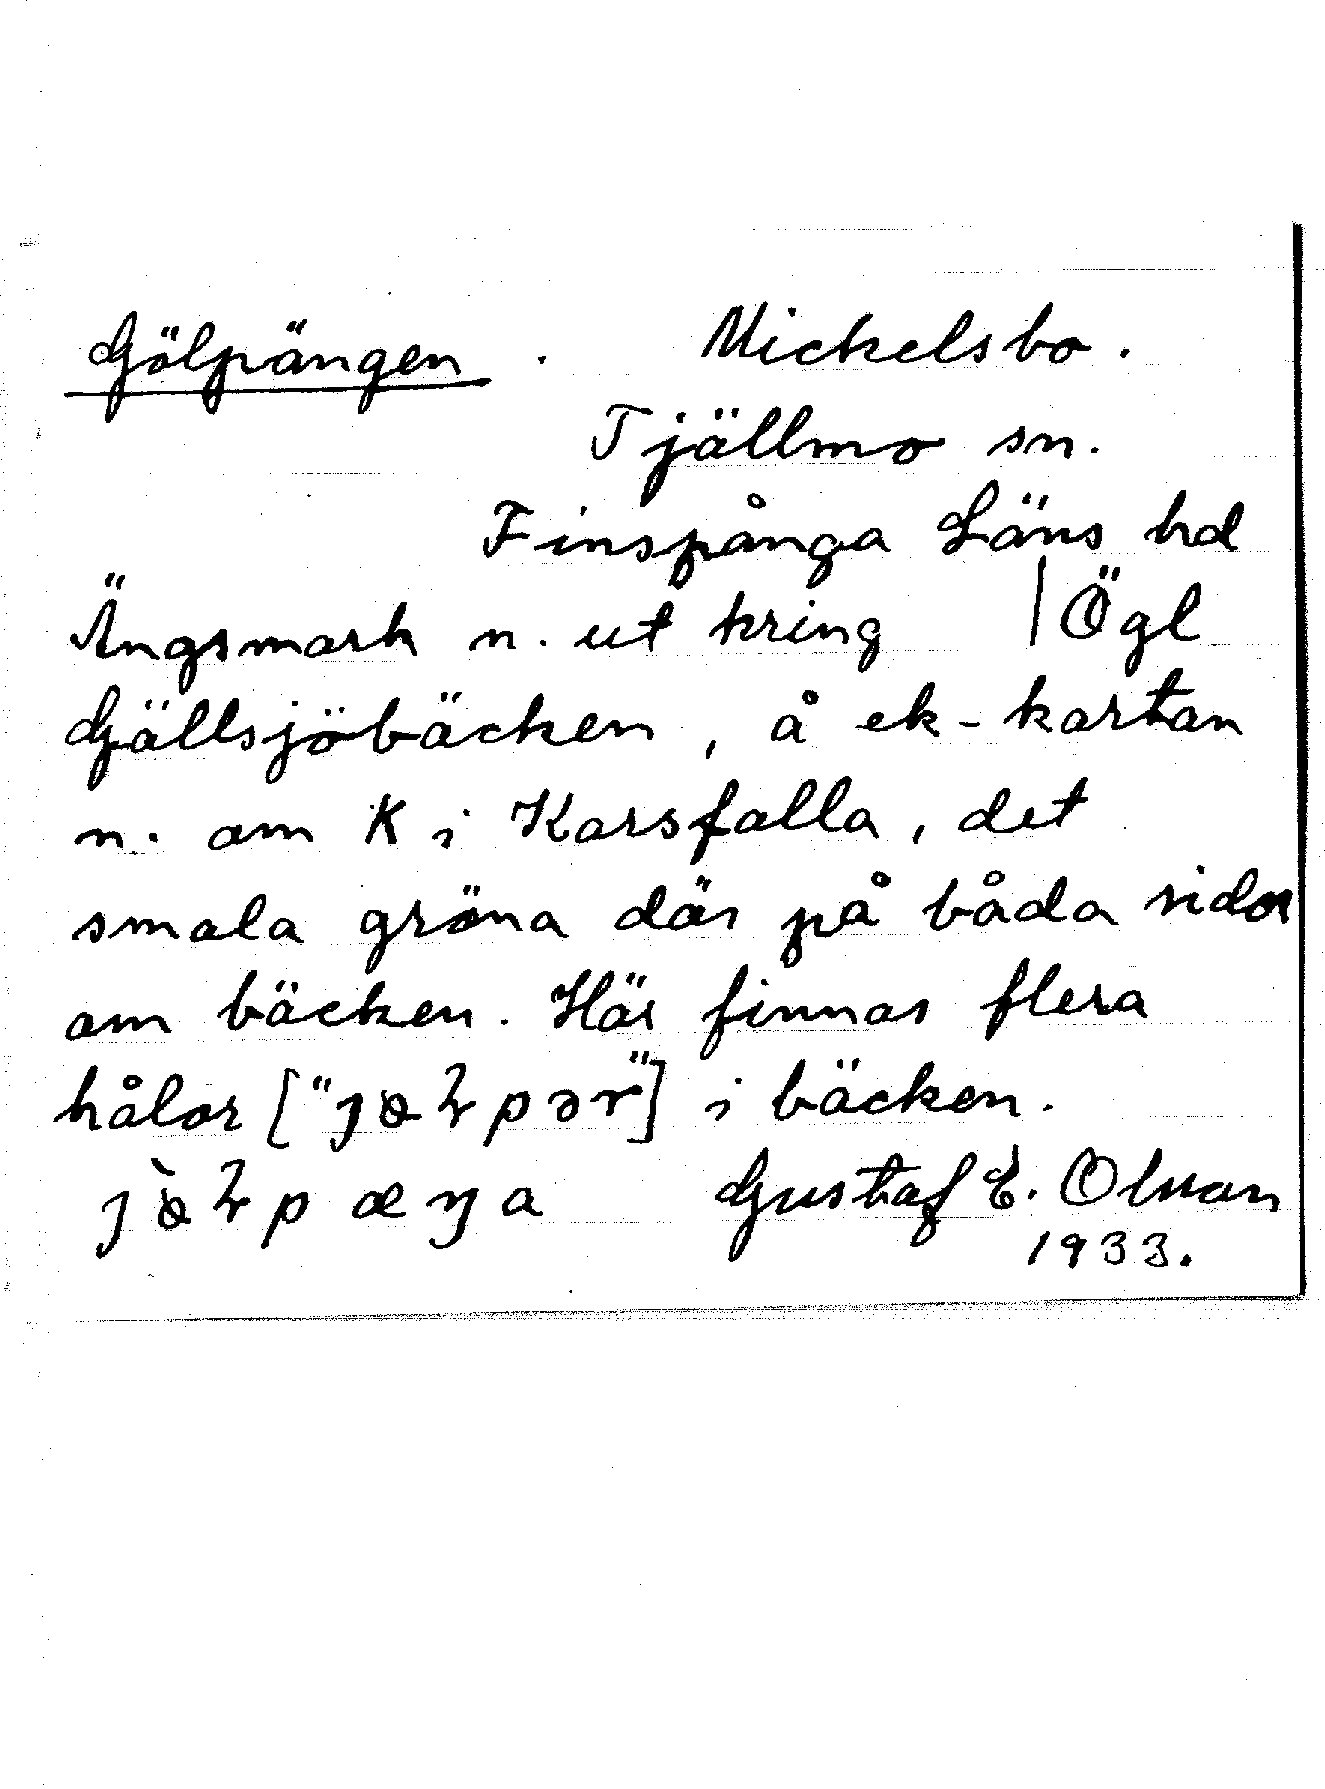 Gölpängen . Mickelsbo .
Tjällmo sn.
Finspånga Läns hd
Ängsmark n. ut kring | Ögl
Gjällsjöbäcken , å ek-kartan
n. om K i Karsfalla, det
smala gröna där på båda sidor
om bäcken. Här finnas flera
hålor ["        "] i bäcken.
Gustaf E. Olson
1933.